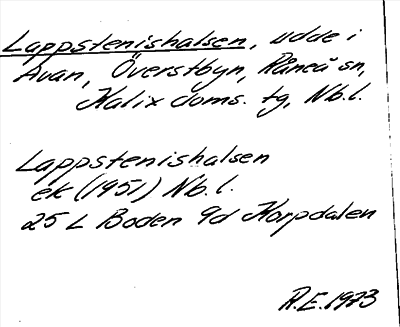 Lappstenishalsen, udde i
Avan, Överstbyn, Råneå sn,
Kalix doms. tg, Nb.l.
Lappstenishalsen
ek (1951) Nb.l.
25 L Boden 9d Korpdalen
R.E. 1973